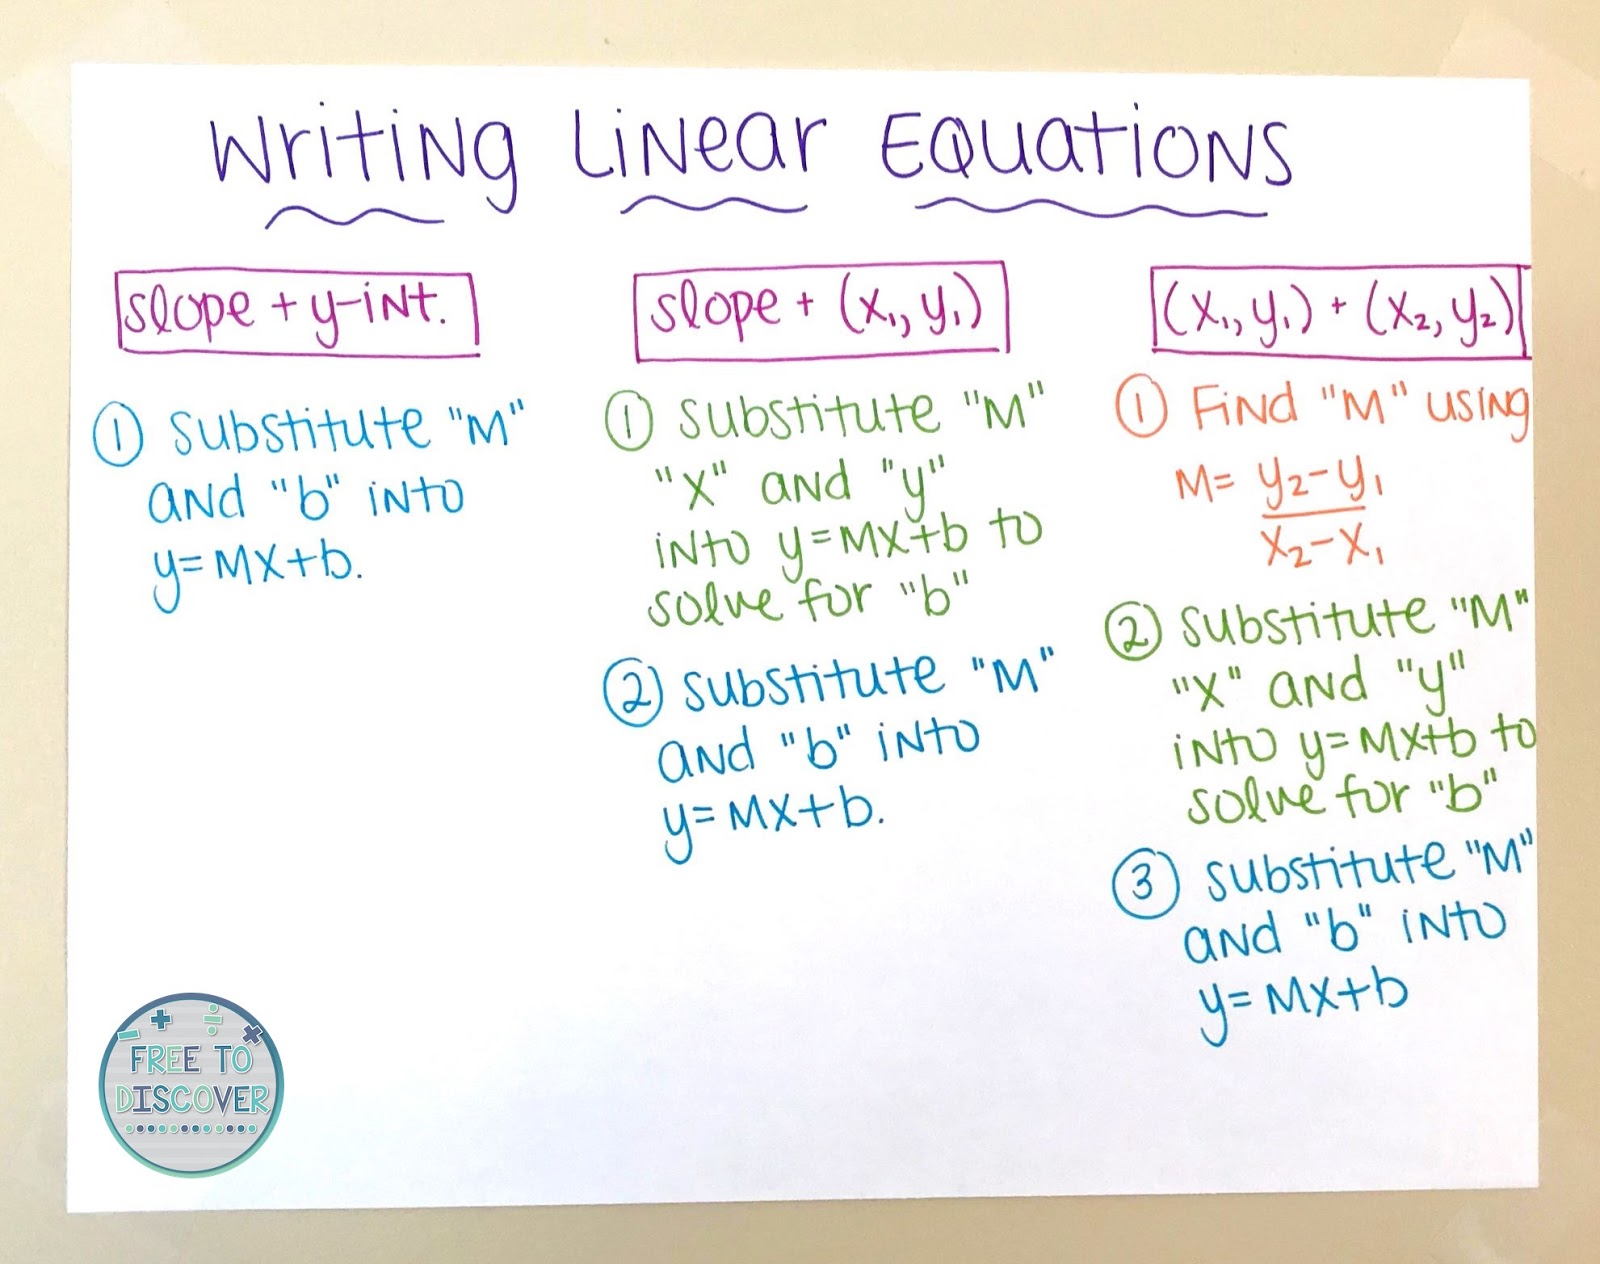 Writing Linear Equations
slope + y-int.
① substitute "M"
and "b" into
y=Mx+b.
slope + (x₁, y₁)
① substitute "M"
"x" and "y"
into y=Mx+b to
solve for "b"
② substitute "M"
and "b" into
y=Mx+b.
(x₁, y₁) + (x₂, y₂)
① Find "M" using
M= y₂-y₁
x₂-x₁
② substitute "M"
"x" and "y"
into y=Mx+b to
solve for "b"
③ substitute "M"
and "b" into
y=Mx+b
FREE TO
DISCOVER